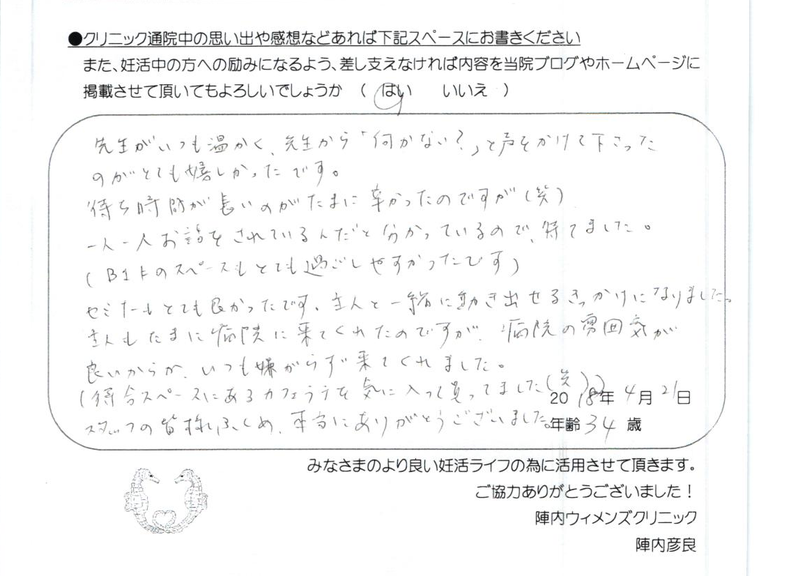 ●クリニック通院中の思い出や感想などあれば下記スペースにお書きください
また、妊活中の方への励みになるよう、差し支えなければ内容を当院ブログやホームページに
掲載させて頂いてもよろしいでしょうか （ はい　　いいえ ）
先生がいつも温かく、先生から「何かない？」と声をかけて下さった
のがとても嬉しかったです。
待ち時間が長いのがたまに辛かったのですが（笑）
一人一人お話をされているんだと分かっているので、待てました。
（B1Fのスペースもとても過ごしやすかったです）
セミナーもとても良かったです。主人と一緒に動き出せるきっかけになりました。
主人もたまに病院に来てくれたのですが、病院の雰囲気が
良いからか、いつも嫌がらず来てくれました。
（待合スペースにあるカフェラテを気に入って買ってました（笑））
2018年4月21日
スタッフの皆様ふくめ、本当にありがとうございました。
年齢34歳
みなさまのより良い妊活ライフの為に活用させて頂きます。
ご協力ありがとうございました！
陣内ウィメンズクリニック
陣内彦良